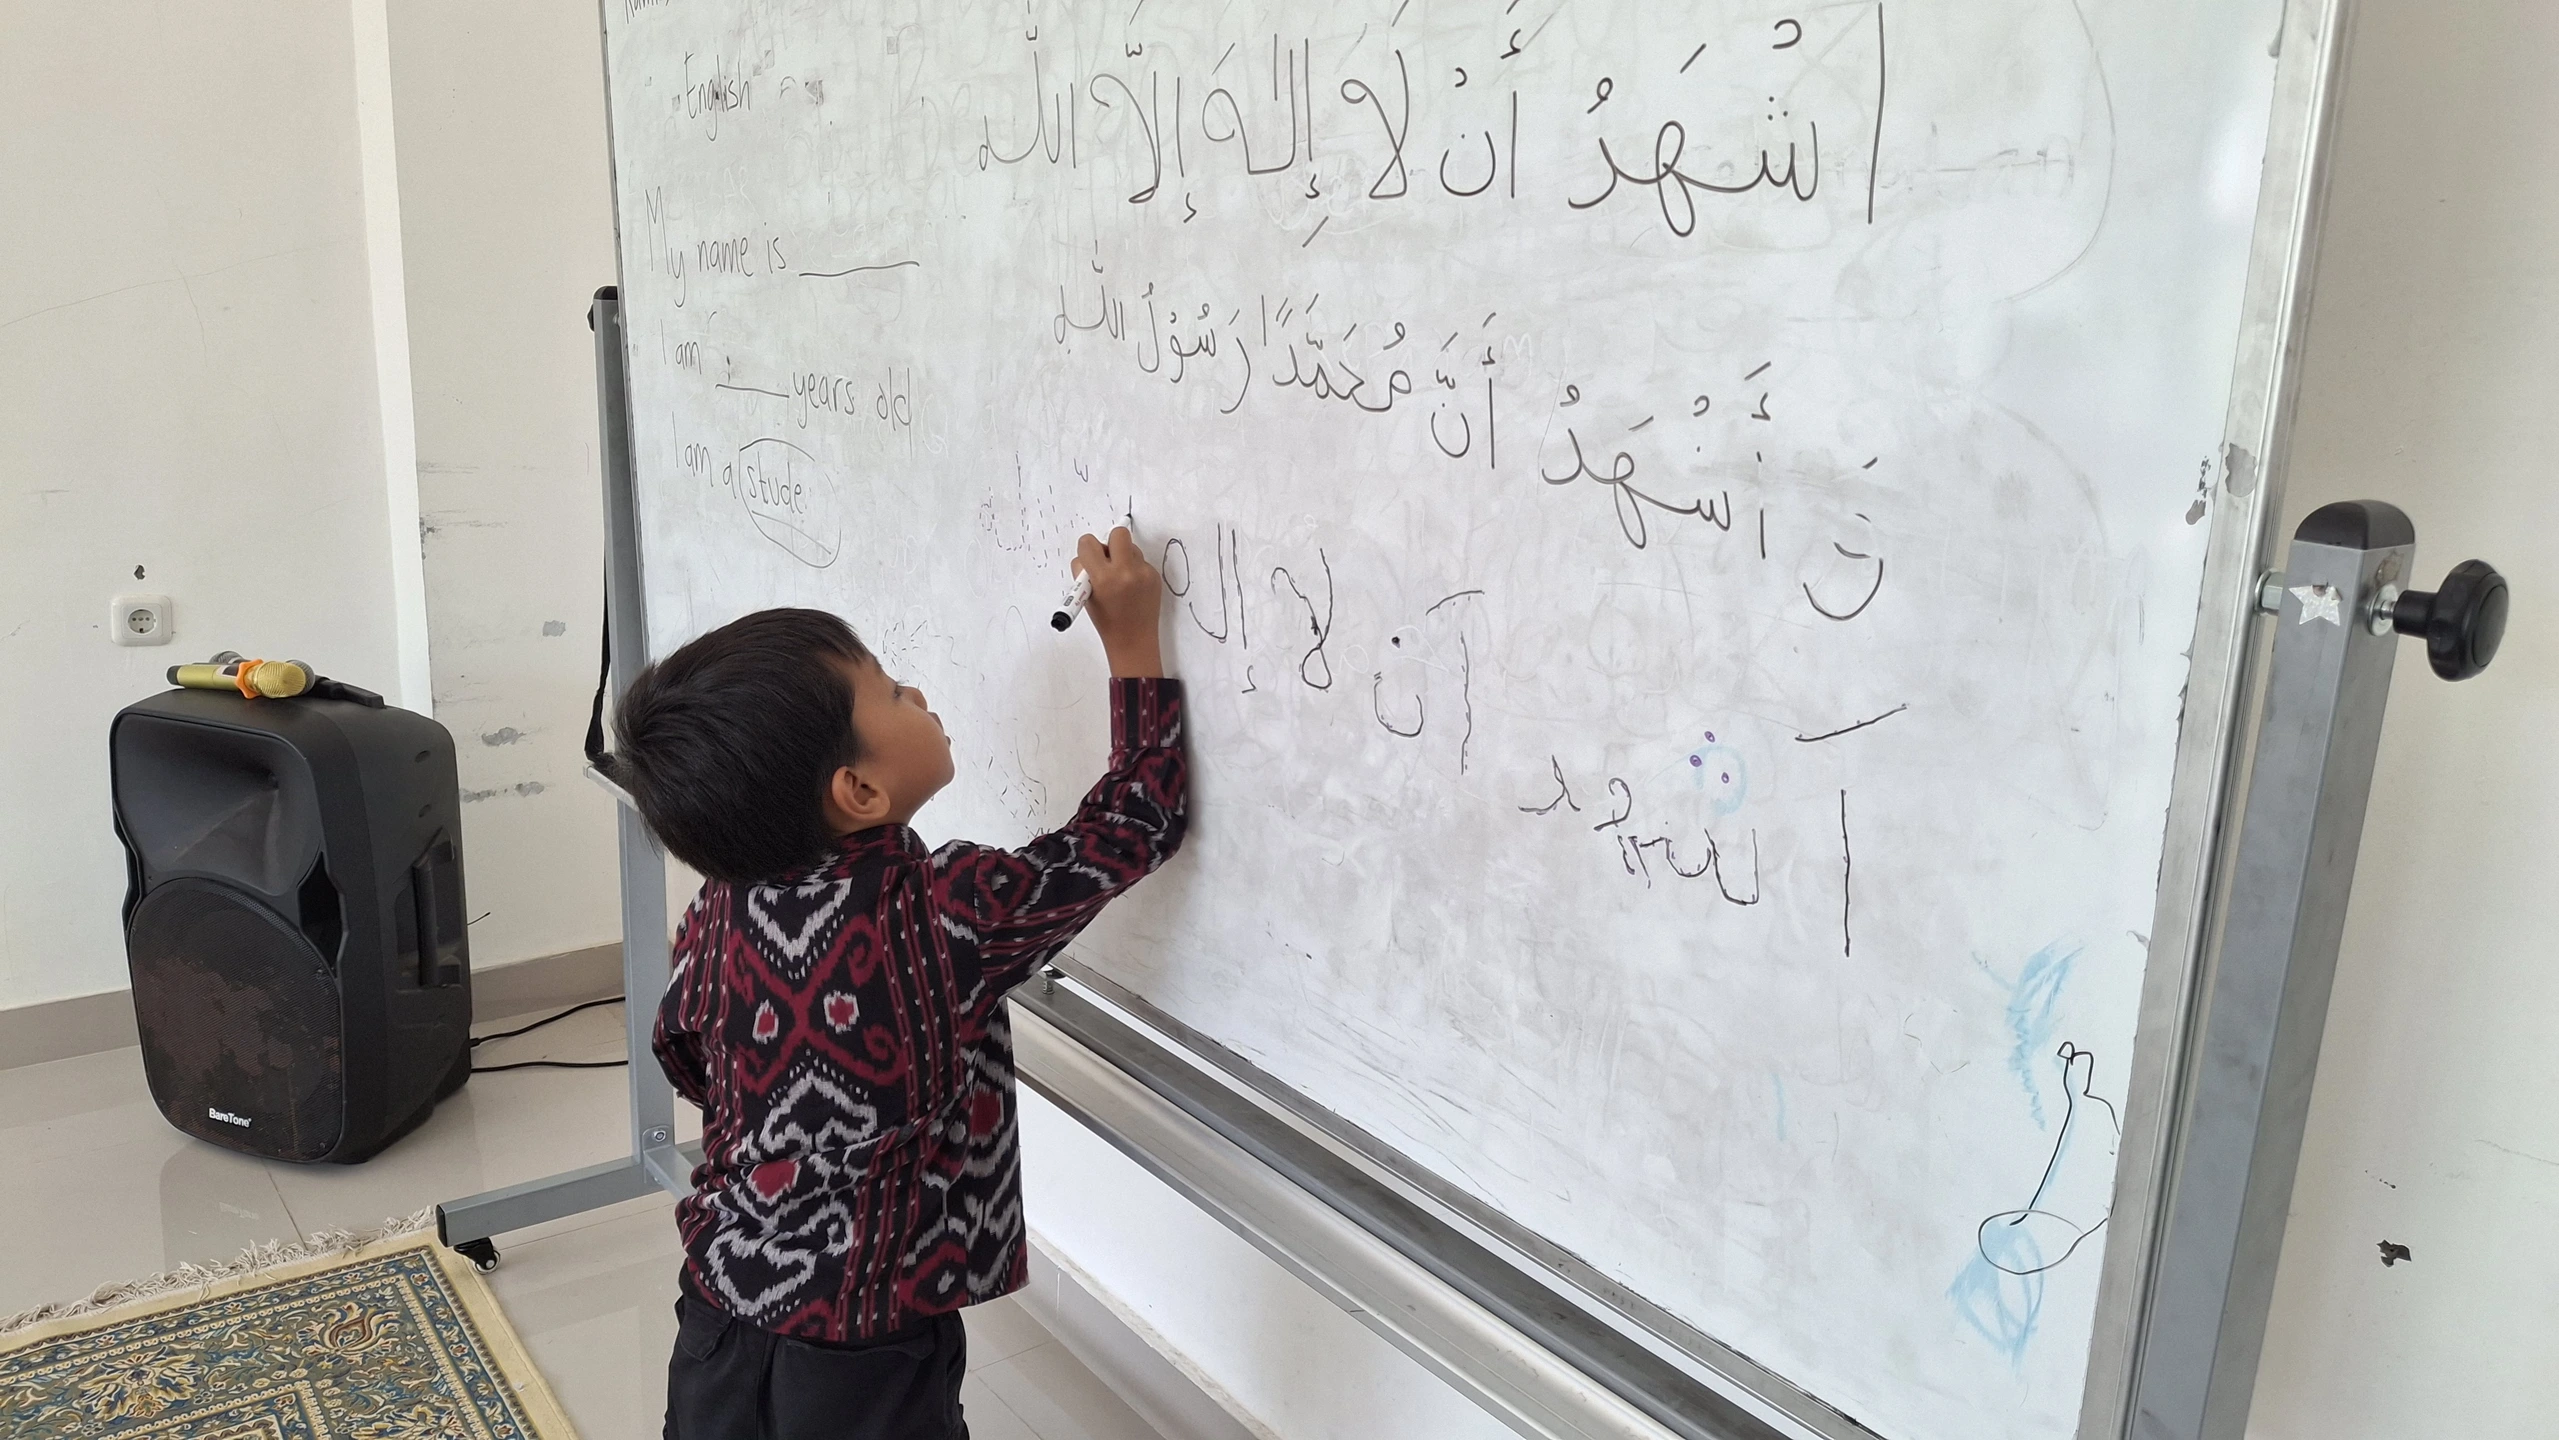 English
My name is ______
I am ___ years old
I am a stude
اشْهَدُ أَنْ لَا إِلٰهَ إِلَّا اللّٰه
وَ أَشْهَدُ أَنَّ مُحَمَّدًا رَسُوْلُ اللّٰه
آن لا إله
BareTone